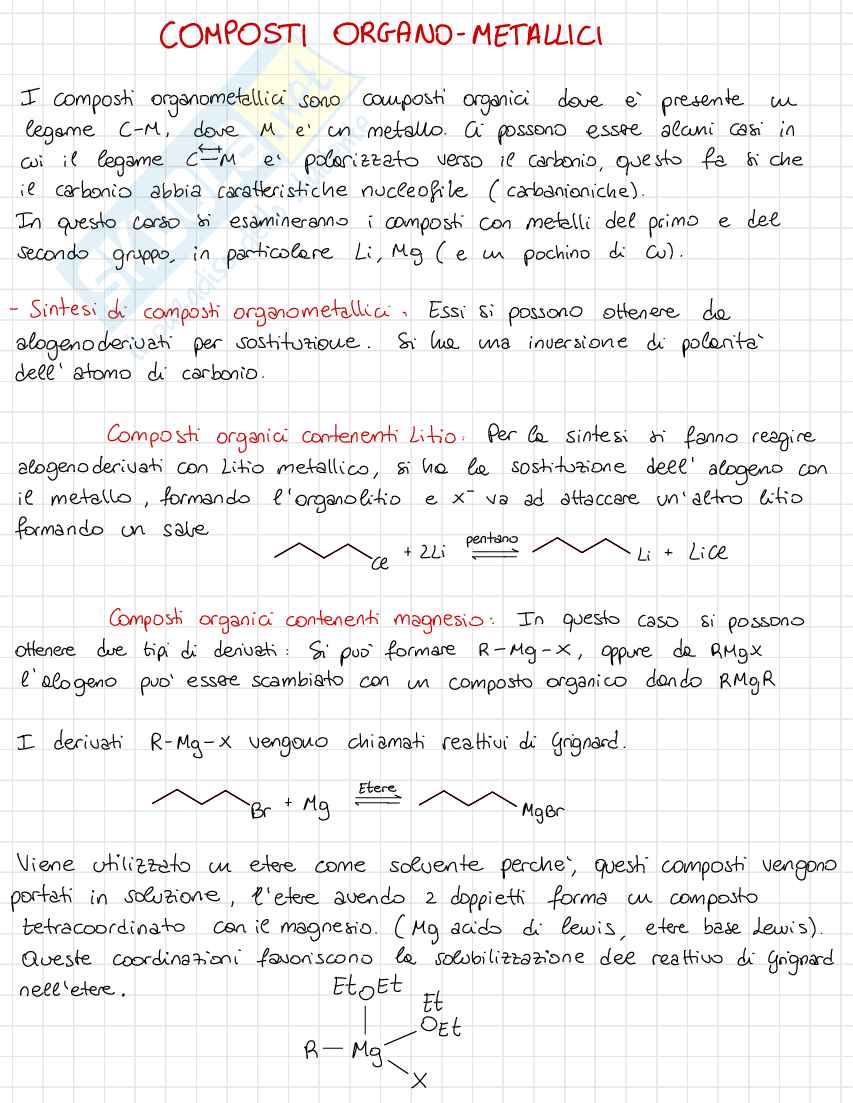 COMPOSTI ORGANO-METALLICI
I composti organometallici sono composti organici dove e' presente un
legame C-M, dove M e' un metallo. Ci possono essere alcuni casi in
cui il legame C–M e' polarizzato verso il carbonio, questo fa si che
il carbonio abbia caratteristiche nucleofile (carbanioniche).
In questo corso si esamineranno i composti con metalli del primo e del
secondo gruppo, in particolare Li, Mg (e un pochino di Cu).
- Sintesi di composti organometallici. Essi si possono ottenere da
alogenoderivati per sostituzione. Si ha una inversione di polarita'
dell' atomo di carbonio.
Composti organici contenenti Litio: Per la sintesi si fanno reagire
alogenoderivati con Litio metallico, si ha la sostituzione dell' alogeno con
il metallo, formando l'organolitio e x⁻ va ad attaccare un'altro litio
formando un sale
Cl + 2Li pentano Li + LiCl
Composti organici contenenti magnesio: In questo caso si possono
ottenere due tipi di derivati: Si puo' formare R-Mg-X, oppure da RMgX
l'alogeno puo' essere scambiato con un composto organico dando RMgR
I derivati R-Mg-X vengono chiamati reattivi di Grignard.
Br + Mg Etere MgBr
Viene utilizzato un etere come solvente perche', questi composti vengono
portati in soluzione, l'etere avendo 2 doppietti forma un composto
tetracoordinato con il magnesio. (Mg acido di lewis, etere base Lewis).
Queste coordinazioni favoriscono la solubilizzazione del reattivo di Grignard
nell'etere.
EtOEt
Et
OEt
R-Mg
X